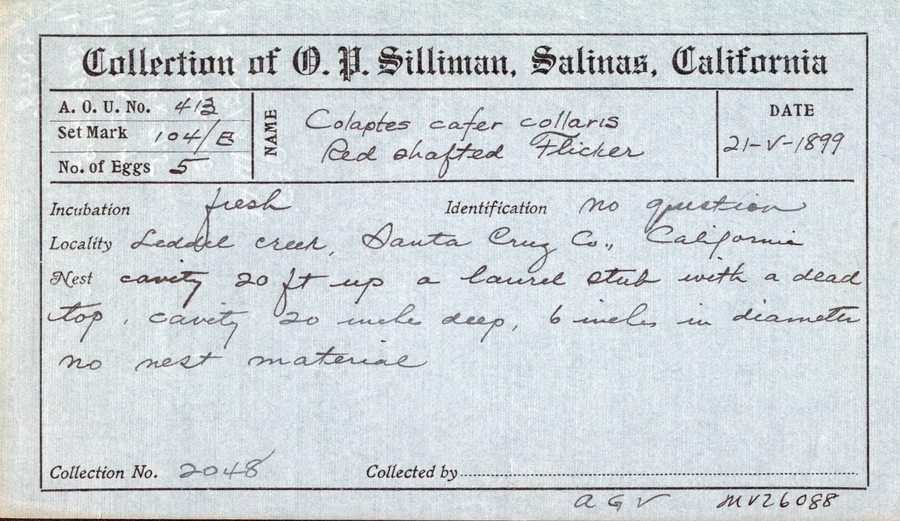 Collection of O. P. Silliman, Salinas, California
A. O. U. No. 413
Set Mark 104/B
No. of Eggs 5
NAME
Colaptes cafer collaris
Red shafted Flicker
DATE
21-V-1899
Incubation fresh Identification no question
Locality Leddel creek, Santa Cruz Co., California
Nest cavity 20 ft up a laurel stub with a dead
top, cavity 20 inche deep, 6 inches in diameter
no nest material
Collection No. 2048 Collected by
A G V MVZ6088